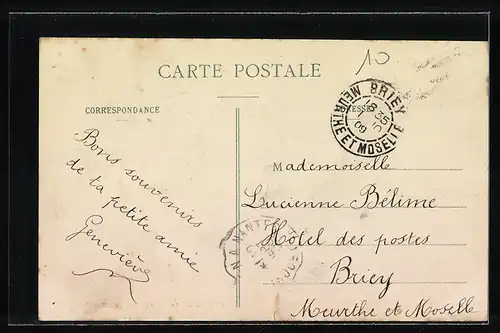 10
CARTE POSTALE
CORRESPONDANCE
BRIEY
MEURTHE ET MOSELLE
Bons souvenirs
de ta petite amie
Geneviève
Mademoiselle
Lucienne Bélime
Hôtel des postes
Briey
Meurthe et Moselle